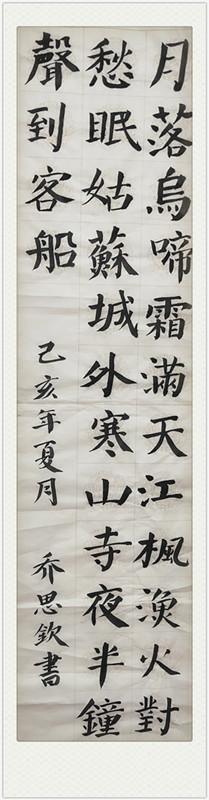 月落烏啼霜滿天江楓漁火對
愁眠姑蘇城外寒山寺夜半鐘
聲到客船
己亥年夏月 乔思欽書